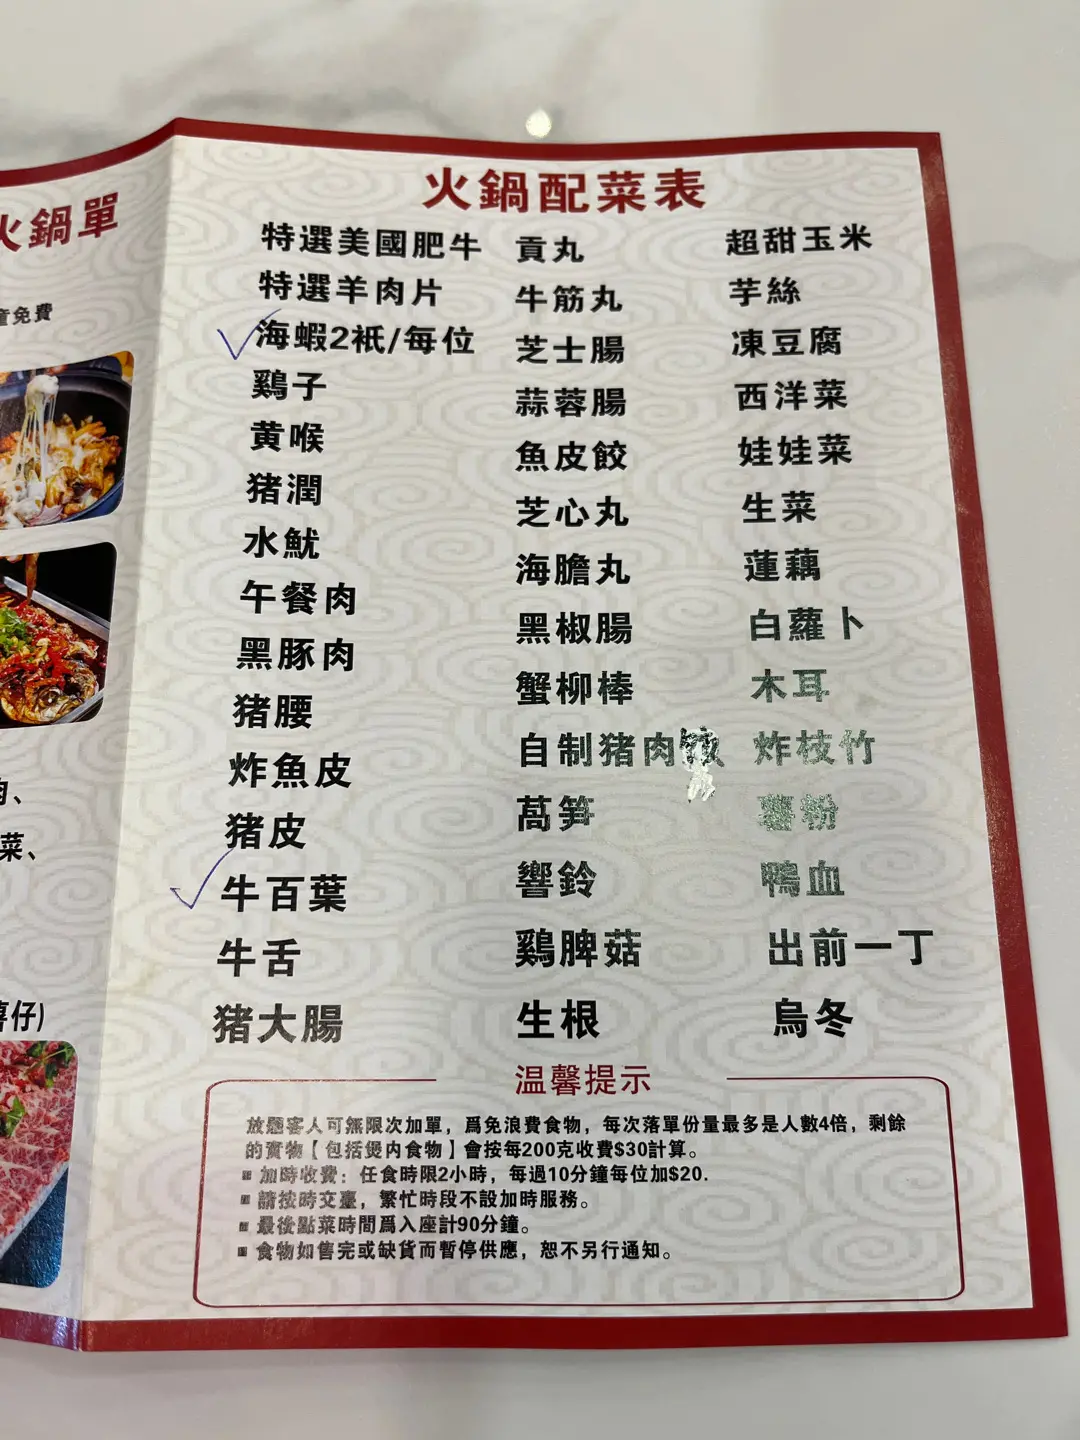 火鍋單
童免費
肉、
菜、
薯仔)
火鍋配菜表
特選美國肥牛
特選羊肉片
海蝦2衹/每位
鷄子
黄喉
猪潤
水魷
午餐肉
黑豚肉
猪腰
炸魚皮
猪皮
牛百葉
牛舌
猪大腸
貢丸
牛筋丸
芝士腸
蒜蓉腸
魚皮餃
芝心丸
海膽丸
黑椒腸
蟹柳棒
自制猪肉
萵笋
響鈴
鷄脾菇
生根
超甜玉米
芋絲
凍豆腐
西洋菜
娃娃菜
生菜
蓮藕
白蘿卜
木耳
炸枝竹
薯粉
鴨血
出前一丁
烏冬
温馨提示
放題客人可無限次加單，爲免浪費食物，每次落單份量最多是人數4倍，剩餘
的實物【包括煲内食物】會按每200克收費$30計算。
加時收費：任食時限2小時，每過10分鐘每位加$20.
請按時交臺，繁忙時段不設加時服務。
最後點菜時間爲入座計90分鐘。
食物如售完或缺貨而暫停供應，恕不另行通知。